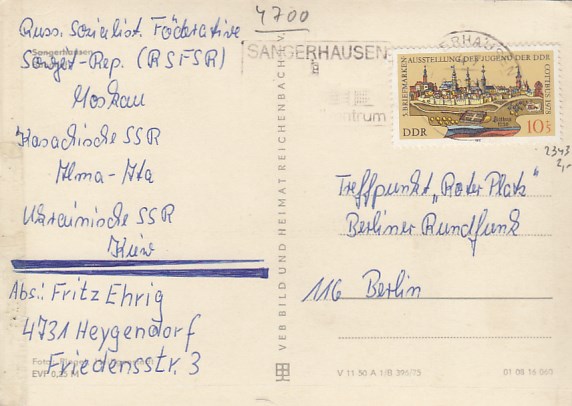 4700
Russ. Sozialist. Föderative
Sangerhausen
Sowjet-Rep. (RSFSR)
Moskau
Kasachische SSR
Alma-Ata
Ukrainische SSR
Kiew
Abs.: Fritz Ehrig
4731 Heygendorf
Friedensstr. 3
EVP 0,25 M
VEB BILD UND HEIMAT REICHENBACH V
SANGERHAUSEN
BRIEFMARKEN-AUSSTELLUNG DER JUGEND DER DDR
COTTBUS 1978
DDR
10+5
2343
2,-
Treffpunkt „Roter Platz“
Berliner Rundfunk
116 Berlin
V 11 50 A 1/B 396/75
01 08 16 060